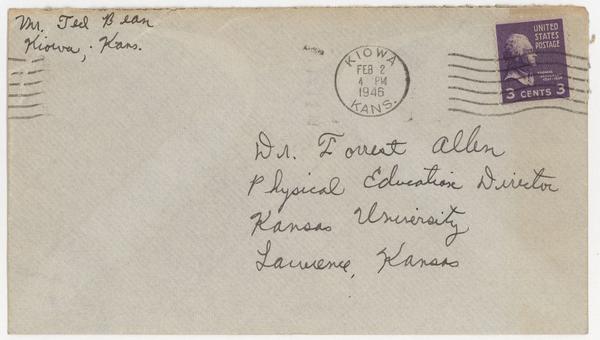 Mr. Ted Bean
Kiowa, Kans.
KIOWA
FEB 2
4 PM
1946
KANS.
UNITED
STATES
POSTAGE
3 CENTS 3
Dr. Forrest Allen
Physical Education Director
Kansas University
Lawrence, Kansas